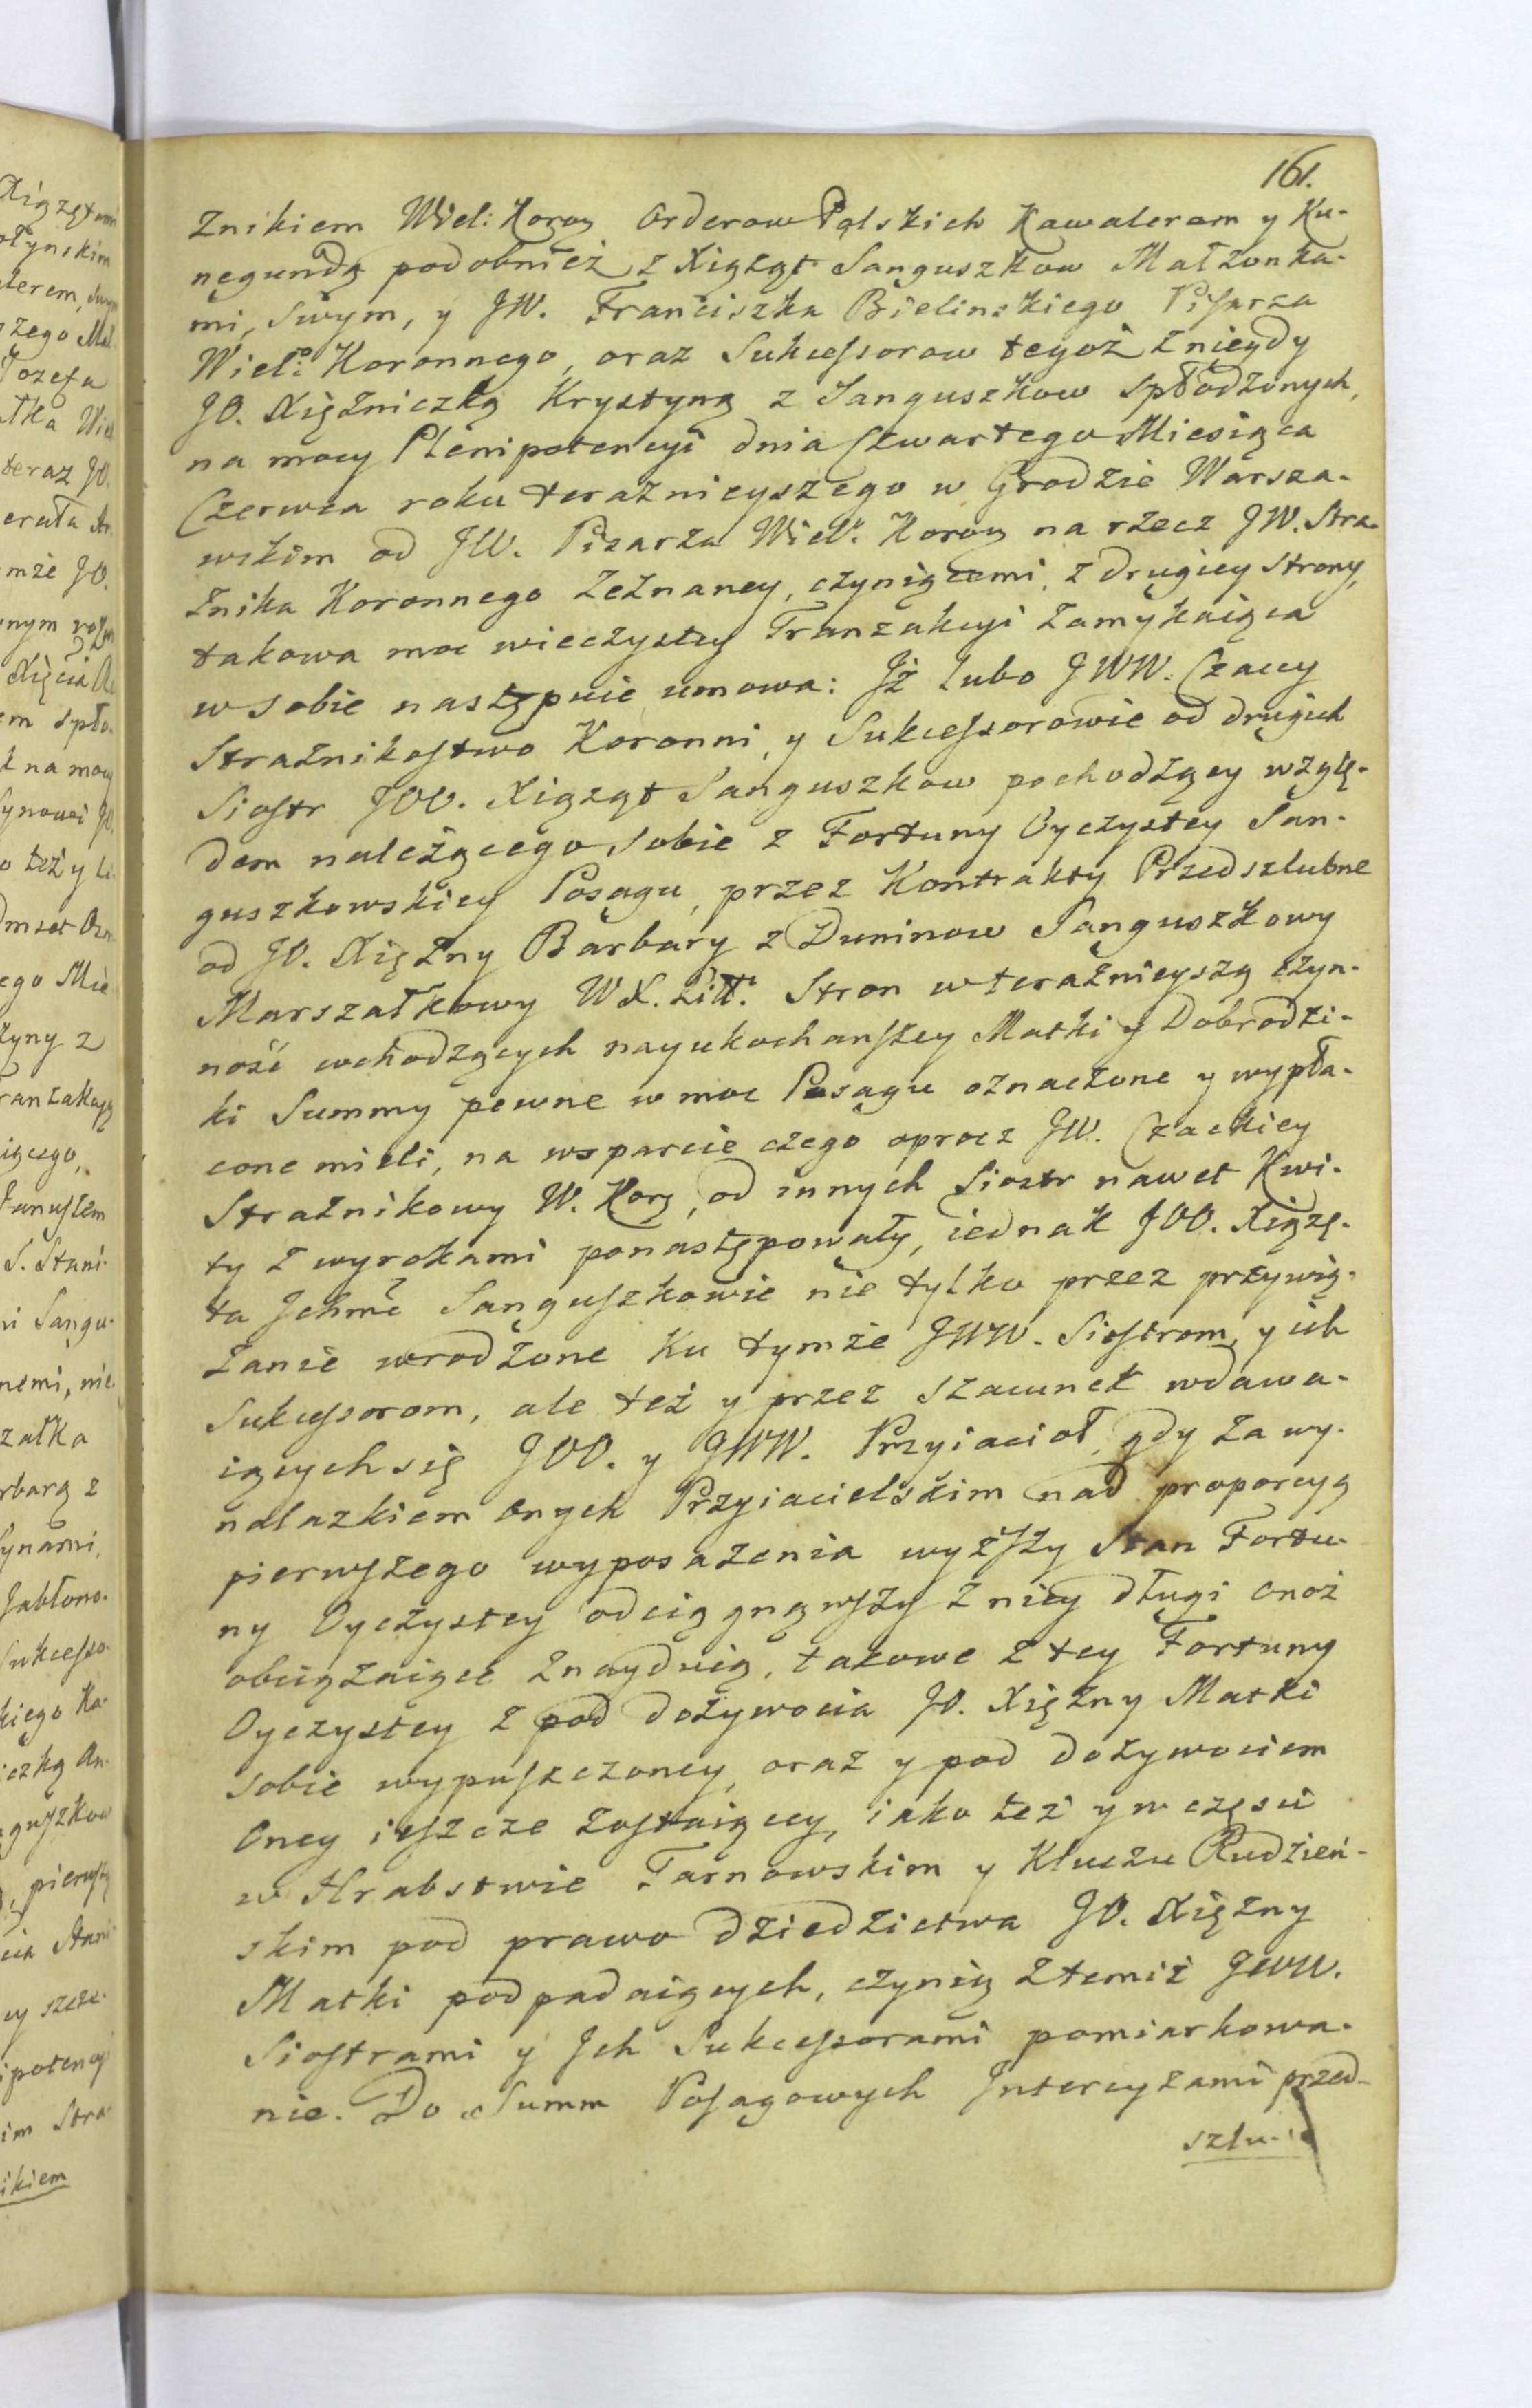 161.
żnikiem Wiel: Koroŋ Orderow Polskich Kawalerem y Ku-
negundą podobnież z Xiążąt Sanguszkow Małżonka-
mi, Swym, y JW. Franciszka Bielinskiego Pisarza
Wielº: Koronnego, oraz Sukcessorow tegoż z niegdy
JO. Xiężniczką Krystyną z Sanguszkow Spłodzonych,
na mocy Plenipotencyi dnia Czwartego Miesiąca
Czerwca roku teraznieyszego w Grodzie Warsza-
wskim od JW. Pisarza Wielº: Koroŋ na rzecz JW. Stra-
żnika Koronnego zeznaney, czyniącemi, z drugiey Strony,
takowa moc wieczystey Tranzakcyi zamykaiąca
w sobie następuie umowa: Jż lubo JWW. Czaccy
Strażnikostwo Koronni, y Sukcessorowie od drugich
Siostr JOO. Xiążąt Sanguszkow pochodzący wzglę-
dem należącego Sobie z Fortuny Oyczystey San-
guszkowskiey Posągu, przez Kontrakty Przedszlubne
od JO. Xiężny Barbary z Duninow Sanguszkowy
Marszałkowy W.X. Litt: Stron w teraznieyszą czyn-
ność wchodzących nayukochańszey Matki y Dobrodzi-
ki Summy pewne w moc Posągu oznaczone y wypła-
cone mieli, na wsparcie czego oprocz JW. Czackiey
Strażnikowy W. Korŋ, od innych Siostr nawet Kwi-
ty z wyrokami ponastępowały, iednak JOO. Xiążę-
ta Jchmć Sanguszkowie nie tylko przez przywią-
zanie wrodzone ku tymże JWW. Siostrom, y ich
Sukcessorom, ale też y przez szacunek wdawa-
iących się JOO. y JWW. Przyiacioł, gdy za wy-
nalazkiem Onych Przyiacielskim nad proporcyą
pierwszego wyposażenia wyższy Stan Fortu-
ny Oyczystey odciągnąwszy z niey długi onoż
obciążaiące znayduią, takowe z tey Fortuny
Oyczystey z pod dożywocia JO. Xiężny Matki
Sobie wypuszczoney, oraz y pod dożywociem
Oney ieszcze zostaiącey, iako też y w częsci
w Hrabstwie Tarnowskim y Kluczu Rudzień-
skim pod prawo dziedzictwa JO. Xiężny
Matki podpadaiących, czynią z temiż JWW.
Siostrami y Jch Sukcessorami pomiarkowa-
nie. Do Summ Posągowych Jntercyzami przed-
szlu-